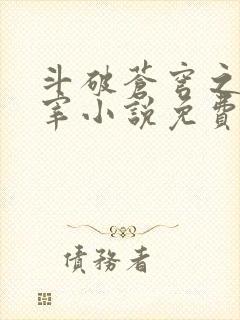 斗破蒼穹之
宰小說免費
債務者